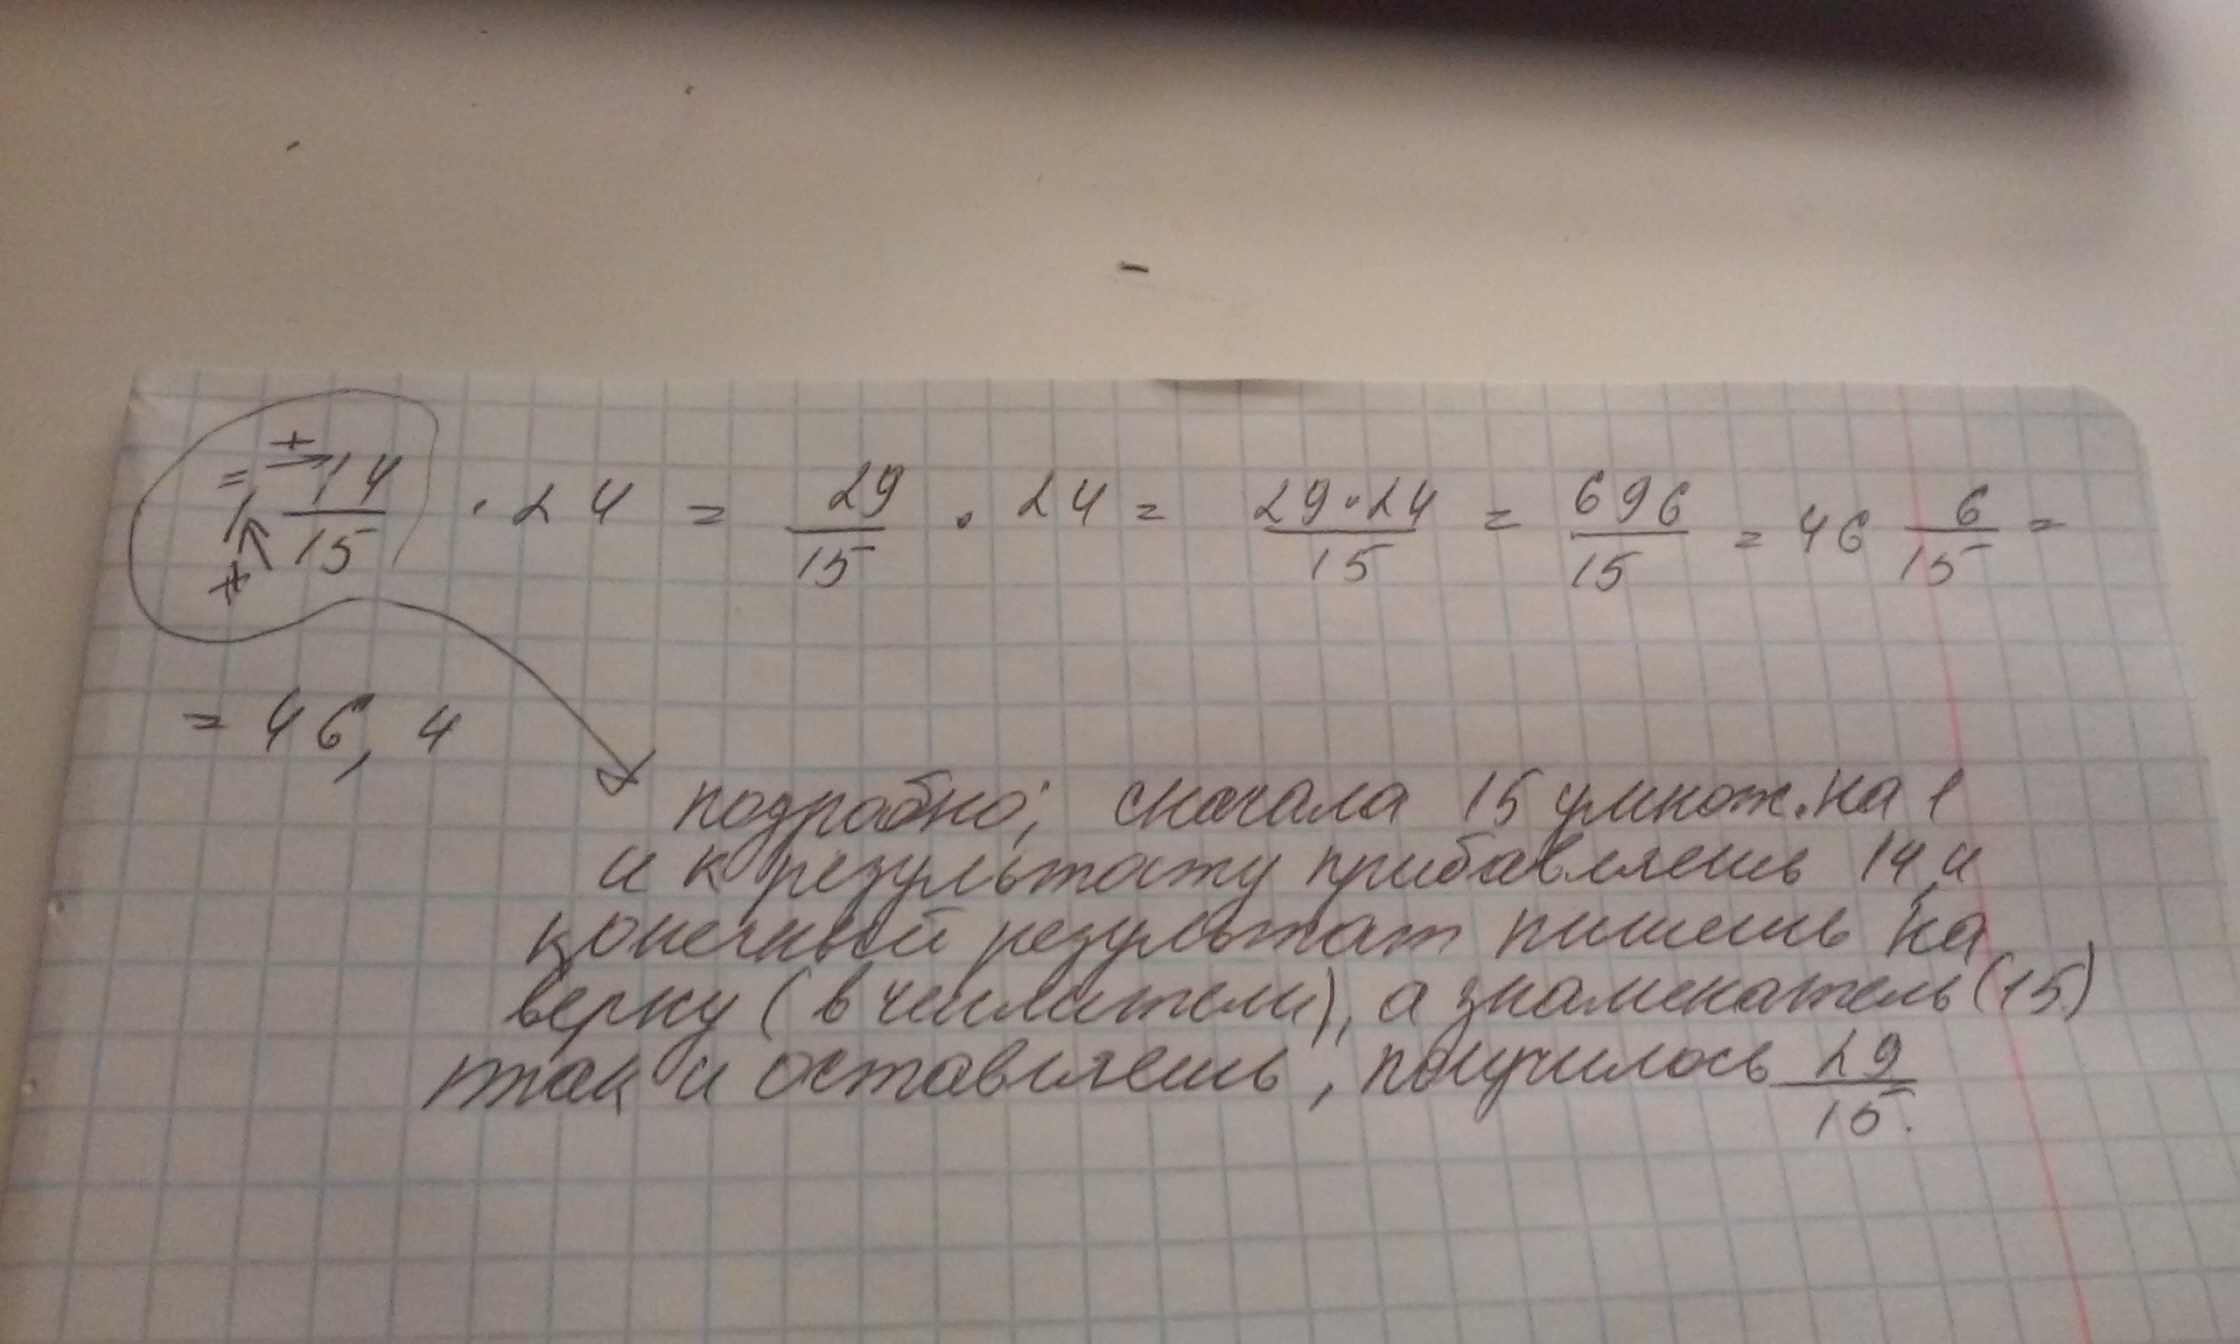 1 14/15 · 24 = 29/15 · 24 = 29·24/15 = 696/15 = 46 6/15 =
= 46,4
подробно; сначала 15 умнож. на 1
и к результату прибавляешь 14, и
конечный результат пишешь на
верху (в числители), а знаменатель (15)
так и оставляешь, получилось 29/15.